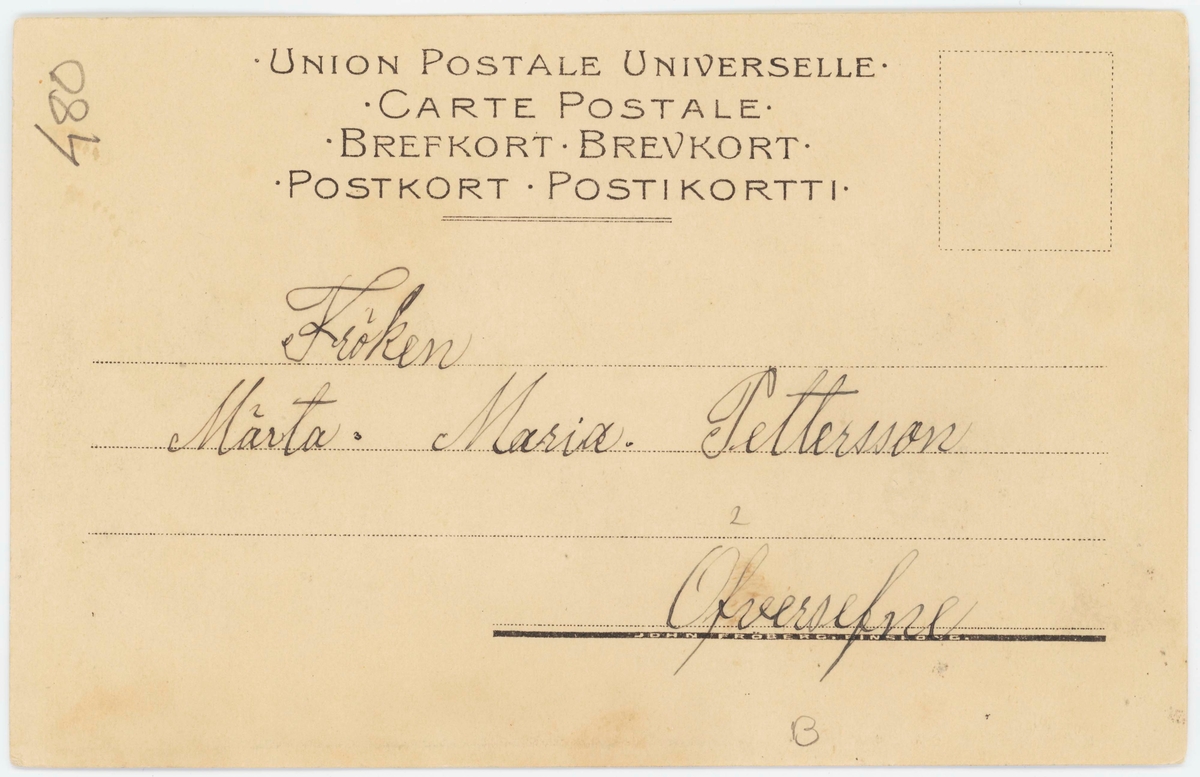 ·UNION POSTALE UNIVERSELLE·
·CARTE POSTALE·
·BREFKORT·BREVKORT·
·POSTKORT·POSTIKORTTI·
480
Fröken
Märta. Maria. Pettersson
Öfversefne
JOHN FRÖBERG, FINSLONG.
B